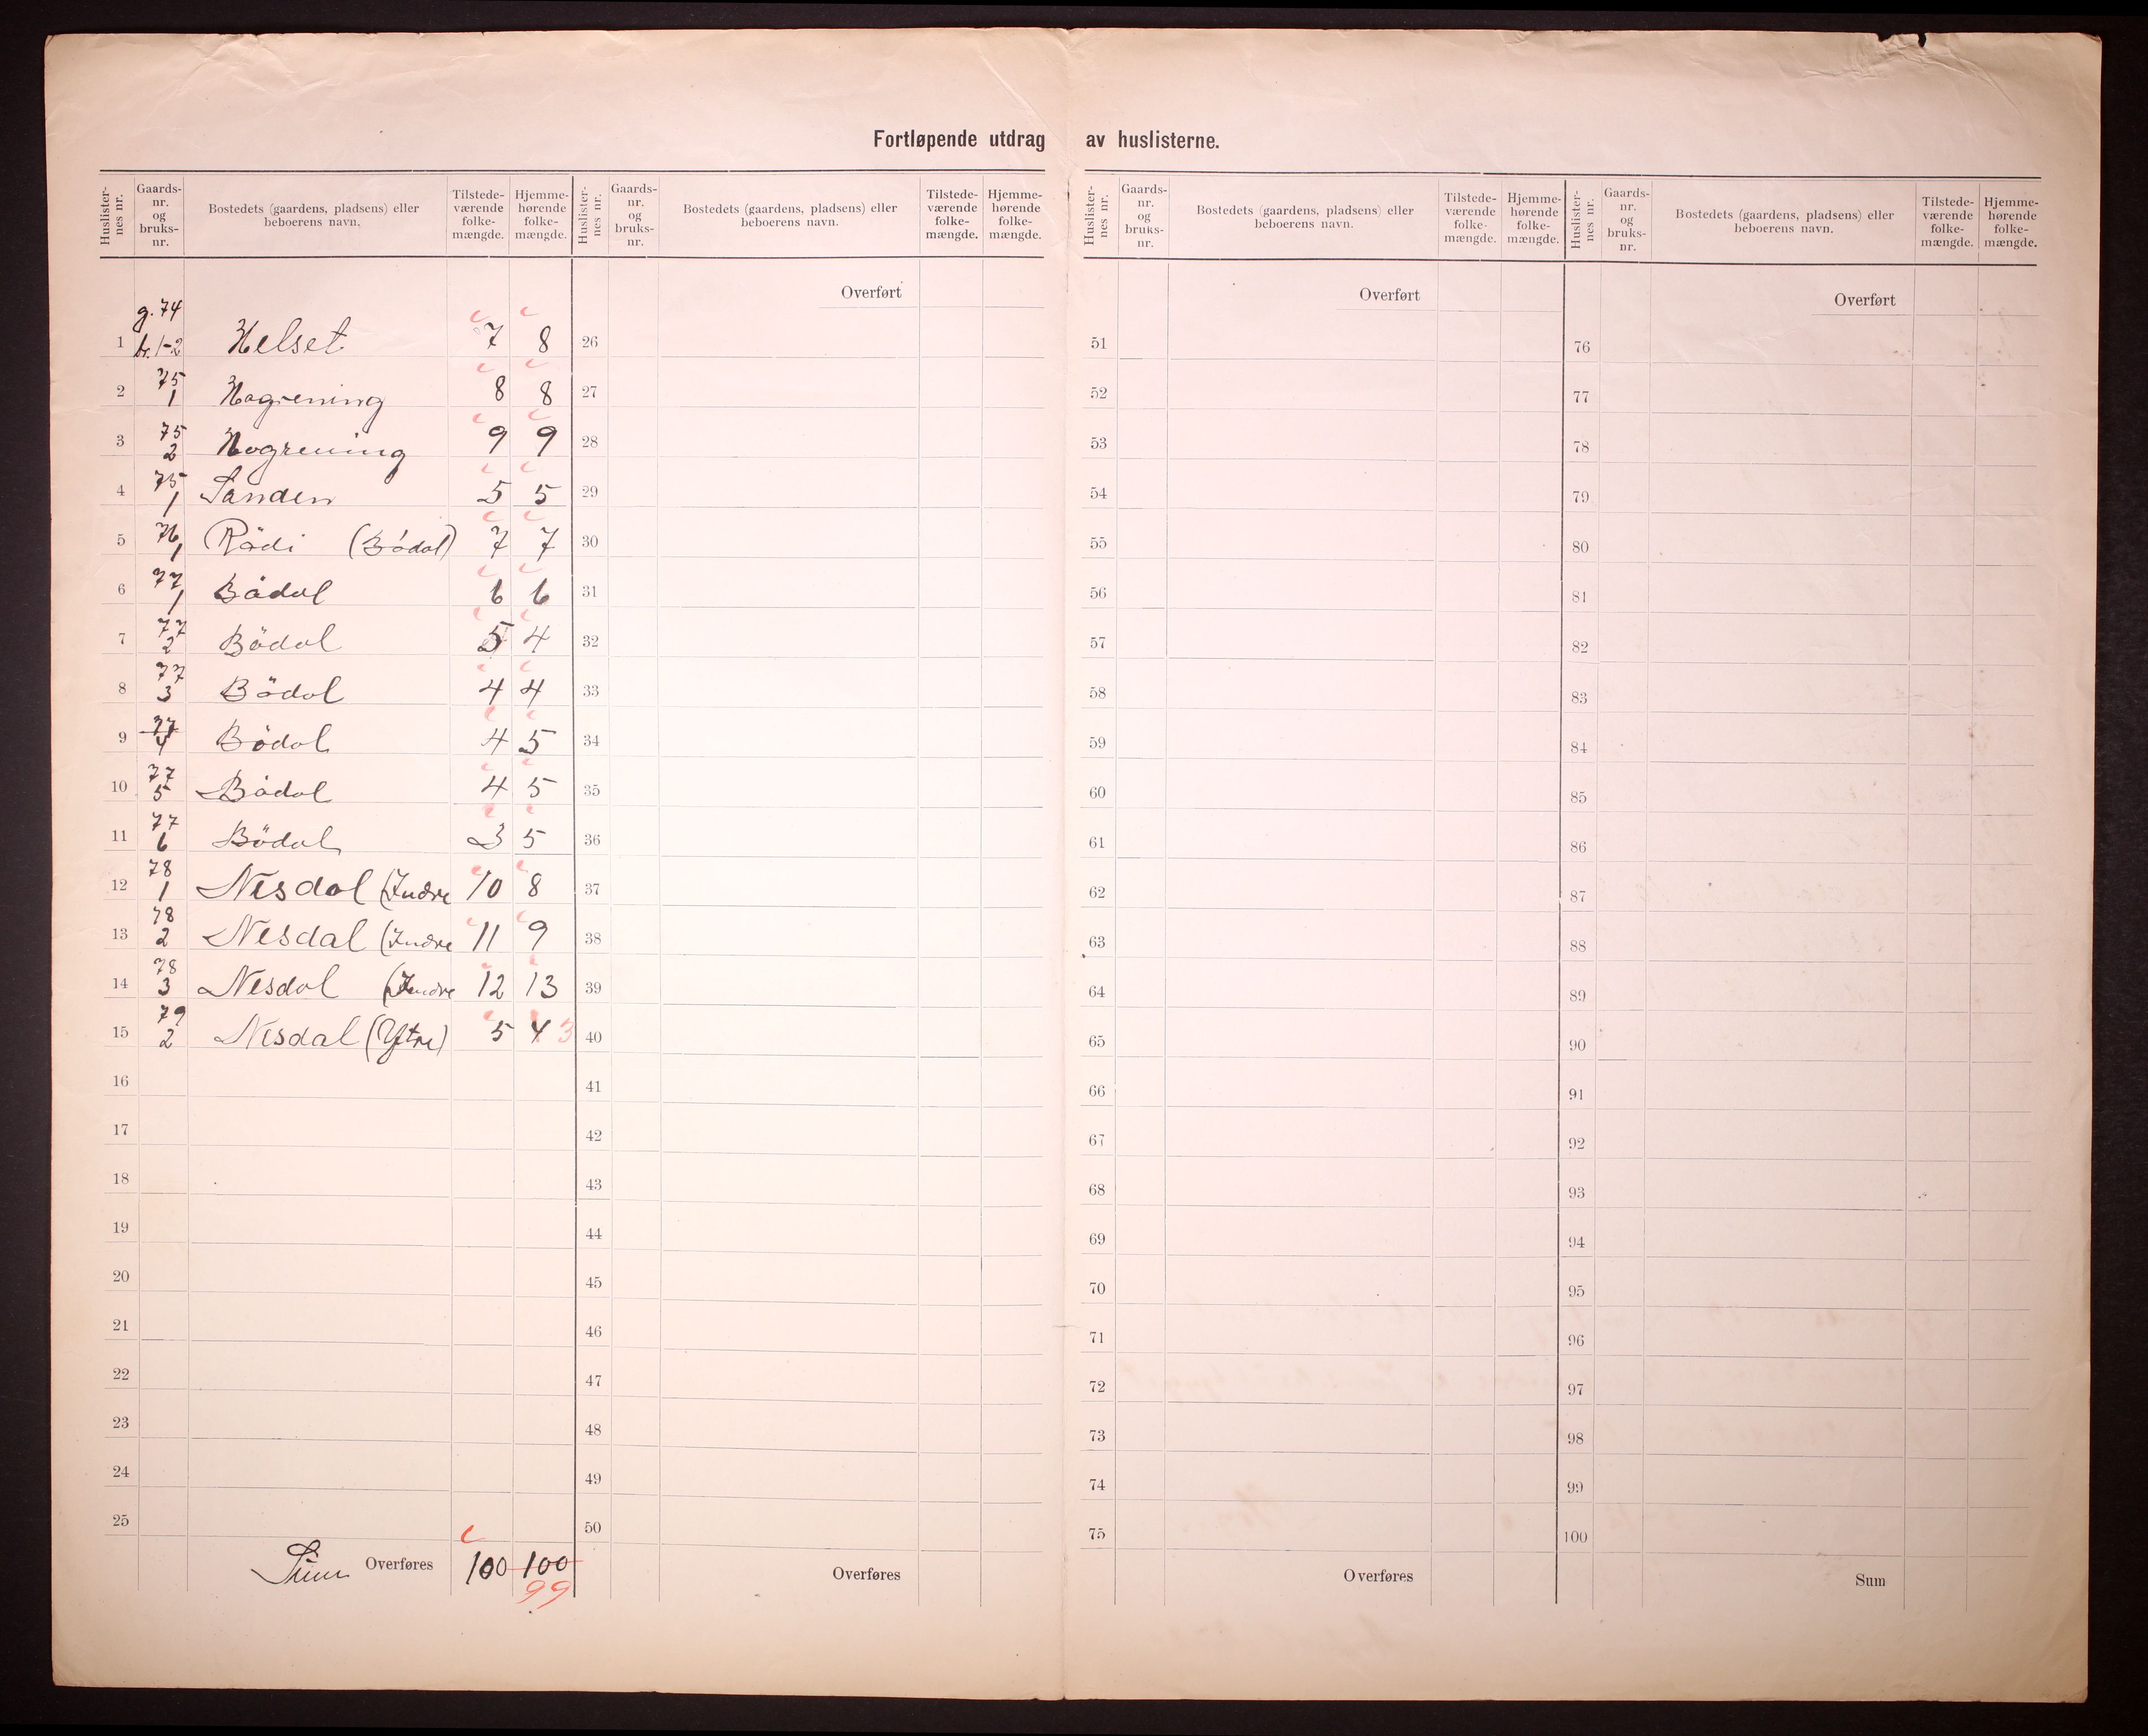 Fortløpende utdrag av huslisterne.
Huslister-nes nr. Gaards-nr. og bruks-nr. Bostedets (gaardens, pladsens) eller beboerens navn. Tilstede-værende folke-mængde. Hjemme-hørende folke-mængde.
Huslister-nes nr. Gaards-nr. og bruks-nr. Bostedets (gaardens, pladsens) eller beboerens navn. Tilstede-værende folke-mængde. Hjemme-hørende folke-mængde.
Huslister-nes nr. Gaards-nr. og bruks-nr. Bostedets (gaardens, pladsens) eller beboerens navn. Tilstede-værende folke-mængde. Hjemme-hørende folke-mængde.
Huslister-nes nr. Gaards-nr. og bruks-nr. Bostedets (gaardens, pladsens) eller beboerens navn. Tilstede-værende folke-mængde. Hjemme-hørende folke-mængde.
1 g. 74 br. 1-2 Helset 7 8
2 75 1 Hogrening 8 8
3 75 2 Hogrening 9 9
4 75 1 Sanden 5 5
5 76 1 Rödi (Bödal) 7 7
6 77 1 Bödal 6 6
7 77 2 Bödal 5 4
8 77 3 Bödal 4 4
9 77 4 Bödal 4 5
10 77 5 Bödal 4 5
11 77 6 Bödal 3 5
12 78 1 Nesdal (Indre 10 8
13 78 2 Nesdal (Indre 11 9
14 78 3 Nesdal (Indre 12 13
15 79 2 Nesdal (Ytre) 5 4 3
16
17
18
19
20
21
22
23
24
25
Sum Overføres 100 100
99
Overført
26
27
28
29
30
31
32
33
34
35
36
37
38
39
40
41
42
43
44
45
46
47
48
49
50
Overføres
Overført
51
52
53
54
55
56
57
58
59
60
61
62
63
64
65
66
67
68
69
70
71
72
73
74
75
Overføres
Overført
76
77
78
79
80
81
82
83
84
85
86
87
88
89
90
91
92
93
94
95
96
97
98
99
100
Sum